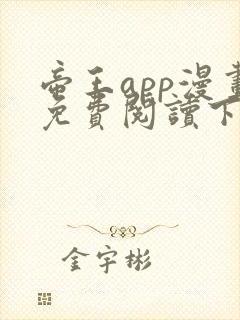 帝王app漫畫
免費閱讀下
金宇彬